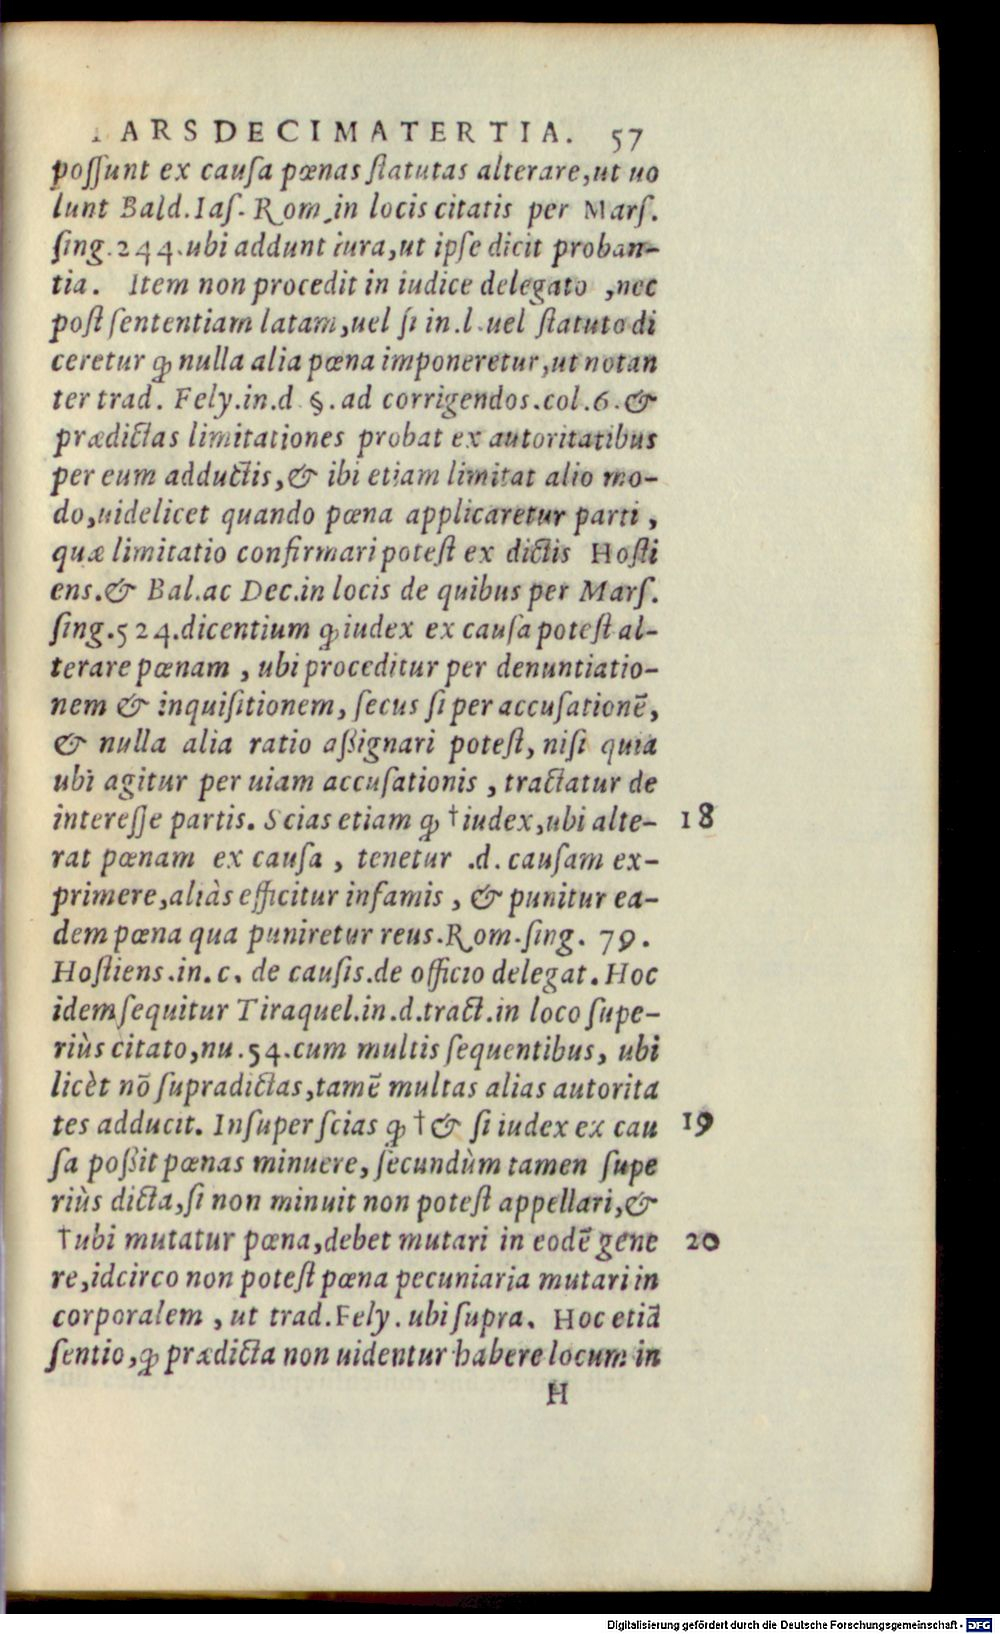 PARS DECIMATERTIA. 57
poſſunt ex cauſa pœnas ſtatutas alterare,ut uo
lunt Bald.Iaſ. Rom.in locis citatis per Marſ.
ſing.244.ubi addunt iura,ut ipſe dicit proban-
tia. Item non procedit in iudice delegato ,nec
poſt ſententiam latam,uel ſi in.l.uel ſtatuto di
ceretur ꝙ nulla alia pœna imponeretur,ut notan
ter trad. Fely.in.d §.ad corrigendos.col.6.&
prædictas limitationes probat ex autoritatibus
per eum adductis,& ibi etiam limitat alio mo-
do,uidelicet quando pœna applicaretur parti ,
quæ limitatio confirmari poteſt ex dictis Hoſti
ens.& Bal.ac Dec.in locis de quibus per Marſ.
ſing.524.dicentium ꝙ iudex ex cauſa poteſt al-
terare pœnam , ubi proceditur per denuntiatio-
nem & inquiſitionem, ſecus ſi per accuſationē,
& nulla alia ratio aßignari poteſt, niſi quia
ubi agitur per uiam accuſationis , tractatur de
intereſſe partis. Scias etiam ꝙ †iudex,ubi alte- 18
rat pœnam ex cauſa , tenetur .d. cauſam ex-
primere,aliàs efficitur infamis , & punitur ea-
dem pœna qua puniretur reus.Rom.ſing. 79.
Hoſtiens.in.c. de cauſis.de officio delegat. Hoc
idem ſequitur Tiraquel.in.d.tract.in loco ſupe-
riùs citato,nu.54.cum multis ſequentibus, ubi
licèt nō ſupradictas,tamē multas alias autorita
tes adducit. Inſuper ſcias ꝙ †& ſi iudex ex cau 19
ſa poßit pœnas minuere, ſecundùm tamen ſupe
riùs dicta,ſi non minuit non poteſt appellari,&
†ubi mutatur pœna,debet mutari in eodē gene 20
re,idcirco non poteſt pœna pecuniaria mutari in
corporalem , ut trad.Fely. ubi ſupra. Hoc etiā
ſentio,ꝙ prædicta non uidentur habere locum in
H
Digitalisierung gefördert durch die Deutsche Forschungsgemeinschaft - DFG